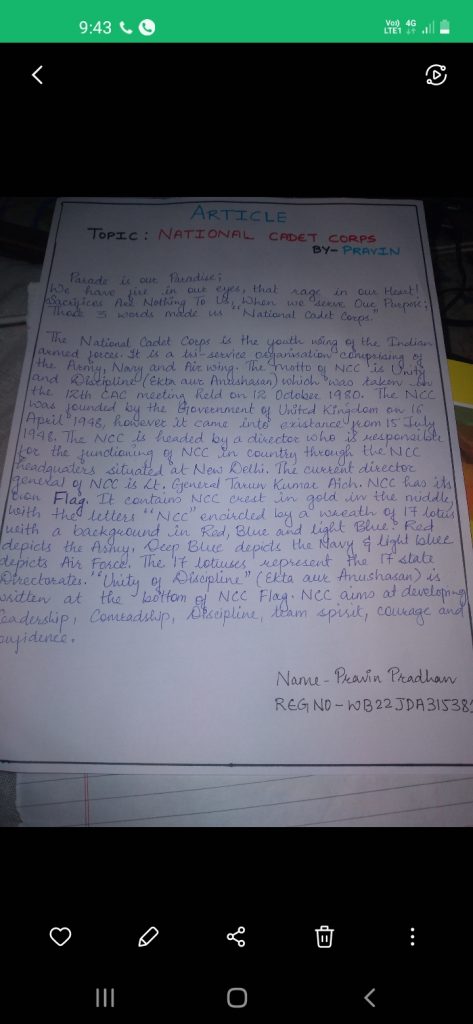 9:43
Vo)) 4G
LTE1
ARTICLE
TOPIC: NATIONAL CADET CORPS
BY- PRAVIN
Parade is our Paradise;
We have fire in our eyes, that rage in our Heart!
Sacrifices Are Nothing To Us, When we serve Our Purpose;
Those 3 words made us "National Cadet Corps."
The National Cadet Corps is the youth wing of the Indian
armed forces. It is a tri-service organisation comprising of
the Army, Navy and Air wing. The motto of NCC is Unity
and Discipline (Ekta aur Anushasan) which was taken on
the 12th CAC meeting held on 12 October 1980. The NCC
was founded by the Government of United Kingdom on 16
April 1948, however it came into existance from 15 July
1948. The NCC is headed by a director who is responsible
for the functioning of NCC in country through the NCC
headquaters situated at New Delhi. The current director
general of NCC is Lt. General Tarun Kumar Aich. NCC has its
own Flag. It contains NCC crest in gold in the middle,
with the letters "NCC" encircled by a wreath of 17 lotus
with a background in Red, Blue and light Blue. Red
depicts the Army, Deep Blue depicts the Navy & light blue
depicts Air Force. The 17 lotuses represent the 17 state
Directorates. "Unity of Discipline" (Ekta aur Anushasan) is
written at the bottom of NCC Flag. NCC aims at developing
Leadership, Comradship, Discipline, team spirit, courage and
confidence.
Name - Pravin Pradhan
REG NO - WB22JDA315381